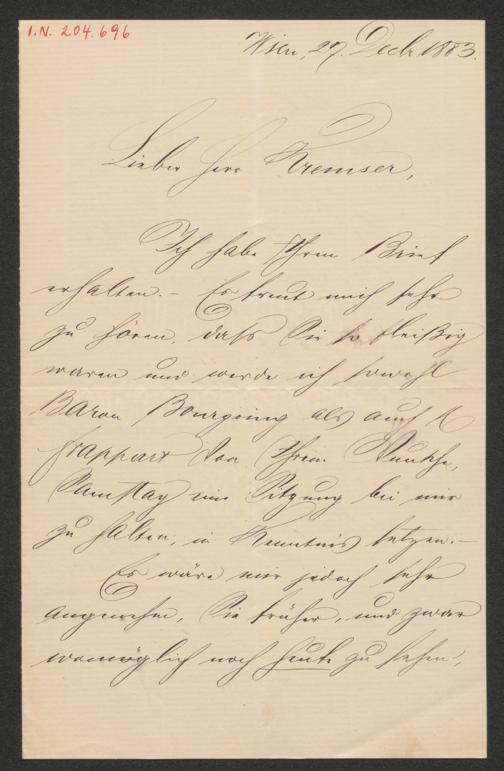 I.N. 204.696
Wien, 27. Decb. 1883.
Lieber Herr Kremser,
Ich habe Ihren Brief
erhalten. – Es freut mich sehr
zu hören, dass Sie so fleißig
waren und werde ich sowohl
Baron Bourgoing als auch
Frappart von Ihrem Wunsche,
Samstag eine Sitzung bei mir
zu halten, in Kenntnis setzen. –
Es wäre mir jedoch sehr
angenehm, Sie früher, und zwar
womöglich noch heute zu sehen,